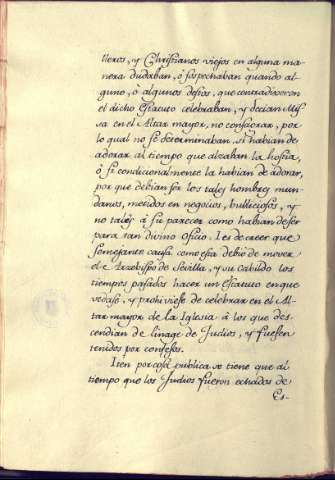 lleros, y Christianos viejos en alguna ma
nera dudaban, ó sospechaban quando al
guno, ó algunos destos, que contradixeron
el dicho Estatuto celebraban, y decian Mis
sa en el Altar mayor, no consagrar, por
lo qual no se determinaban si habian de
adorar al tiempo que alzaban la hostia,
ó si condicionalmente la habian de adorar,
por que debian ser los tales hombres mun
danos, metidos en negocios, bulliciosos, y
no tales á su parecer como habian de ser
para tan divino oficio. I es de creer que
semejante causa como esta debio de mover
el Arzobispo de Sevilla, y su cabildo los
tiempos pasados hacer un Estatuto en que
vedase, y prohiviese de celebrar en el Al
tar mayor de la Iglesia á los que des
cendian de linage de Judios, y fuesen
tenidos por confesos.
Iten por cosa publica se tiene que al
tiempo que los Judios fueron echados de
Es-